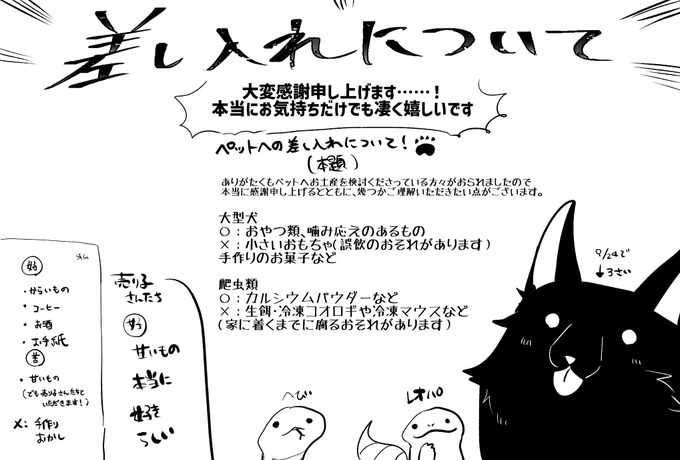 差し入れについて
大変感謝申し上げます……！
本当にお気持ちだけでも凄く嬉しいです
ペットへの差し入れについて！
(本題)
ありがたくもペットへお土産を検討くださっている方々がおられましたので
本当に感謝申し上げるとともに、幾つかご理解いただきたい点がございます。
大型犬
○：おやつ類、噛み応えのあるもの
×：小さいおもちゃ(誤飲のおそれがあります)
手作りのお菓子など
爬虫類
○：カルシウムパウダーなど
×：生餌・冷凍コオロギや冷凍マウスなど
(家に着くまでに腐るおそれがあります)
好
・からいもの
・コーヒー
・お酒
・お手紙
苦
・甘いもの
(でも売り子さんたちと
いただきます！)
×：手作り
おかし
売り子
さんたち
好
甘いもの
本当に
好き
らしい
へび
レオパ
9/24で
↓3さい